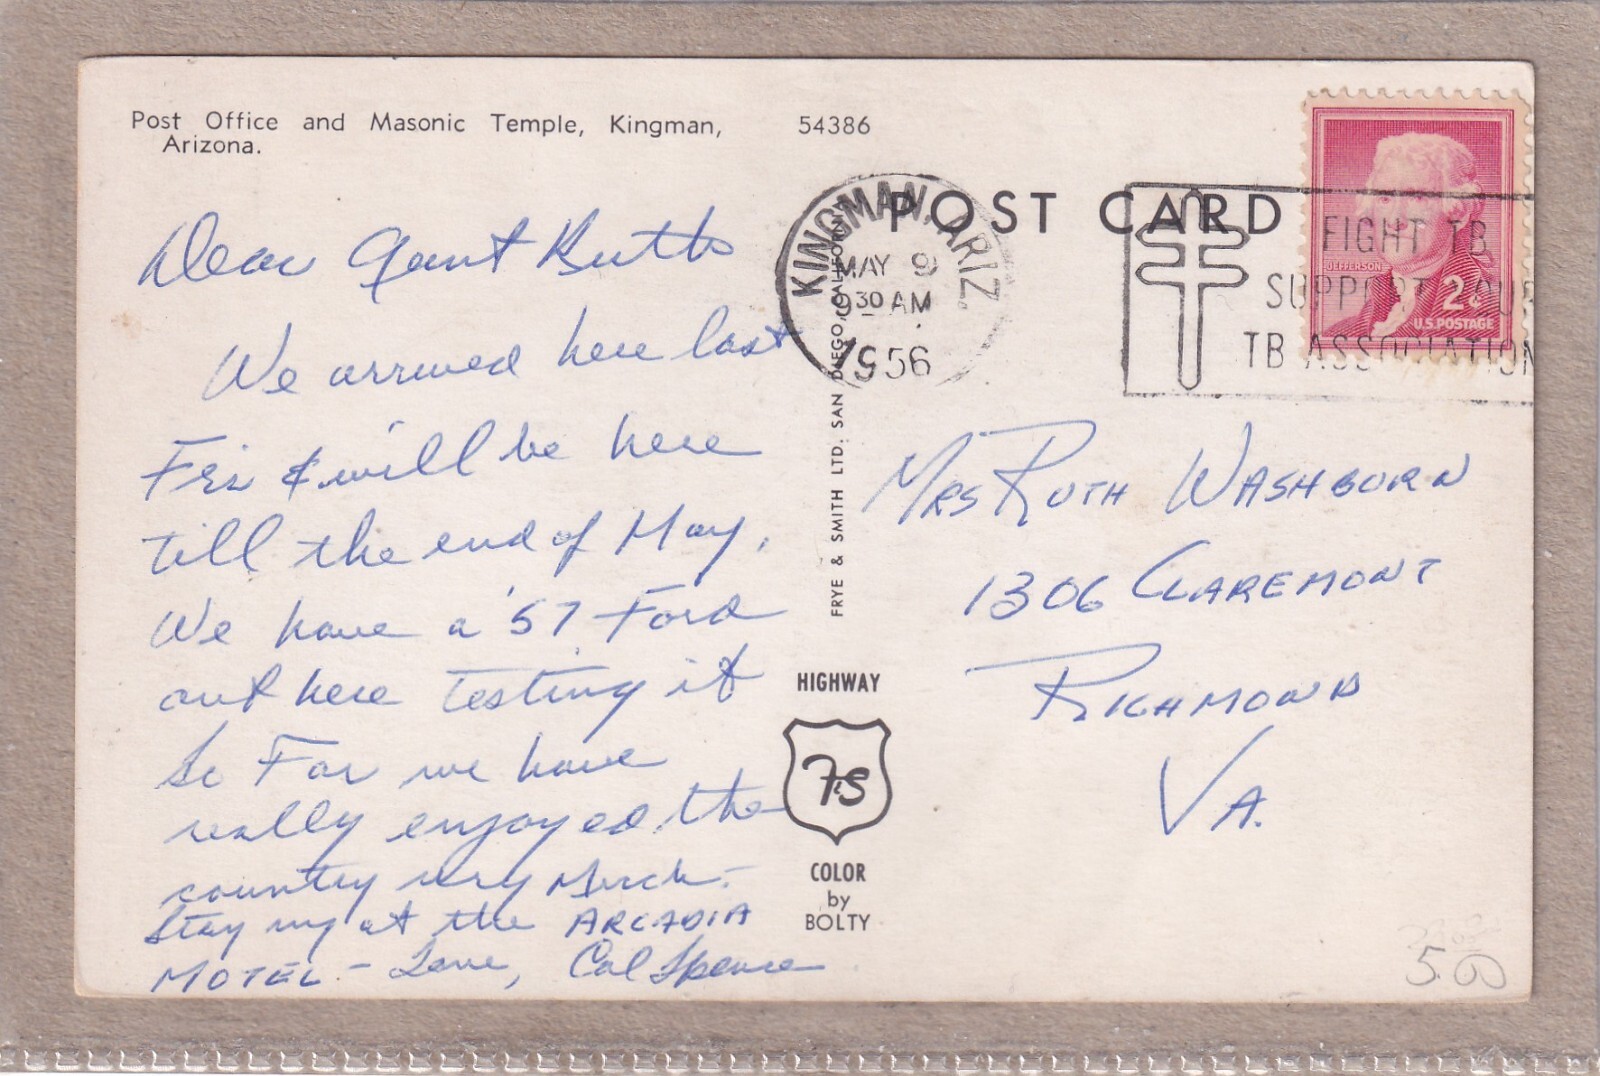 Post Office and Masonic Temple, Kingman,
Arizona.
54386
POST CARD
KINGMAN, ARIZ.
MAY 9
9 30 AM
1956
FIGHT TB
SUPPORT YOUR
TB ASSOCIATION
JEFFERSON
2¢
U.S. POSTAGE
Dear Aunt Ruth
We arrived here last
Fri & will be here
till the end of May.
We have a '57 Ford
out here testing it
So Far we have
really enjoyed the
country very much.
Staying at the ARCADIA
MOTEL - Love, Cal Spence
FRYE & SMITH LTD. SAN DIEGO, CALIFORNIA
HIGHWAY
FS
COLOR
by
BOLTY
MRS RUTH WASHBURN
1306 CLAREMONT
RICHMOND
VA.
5.00